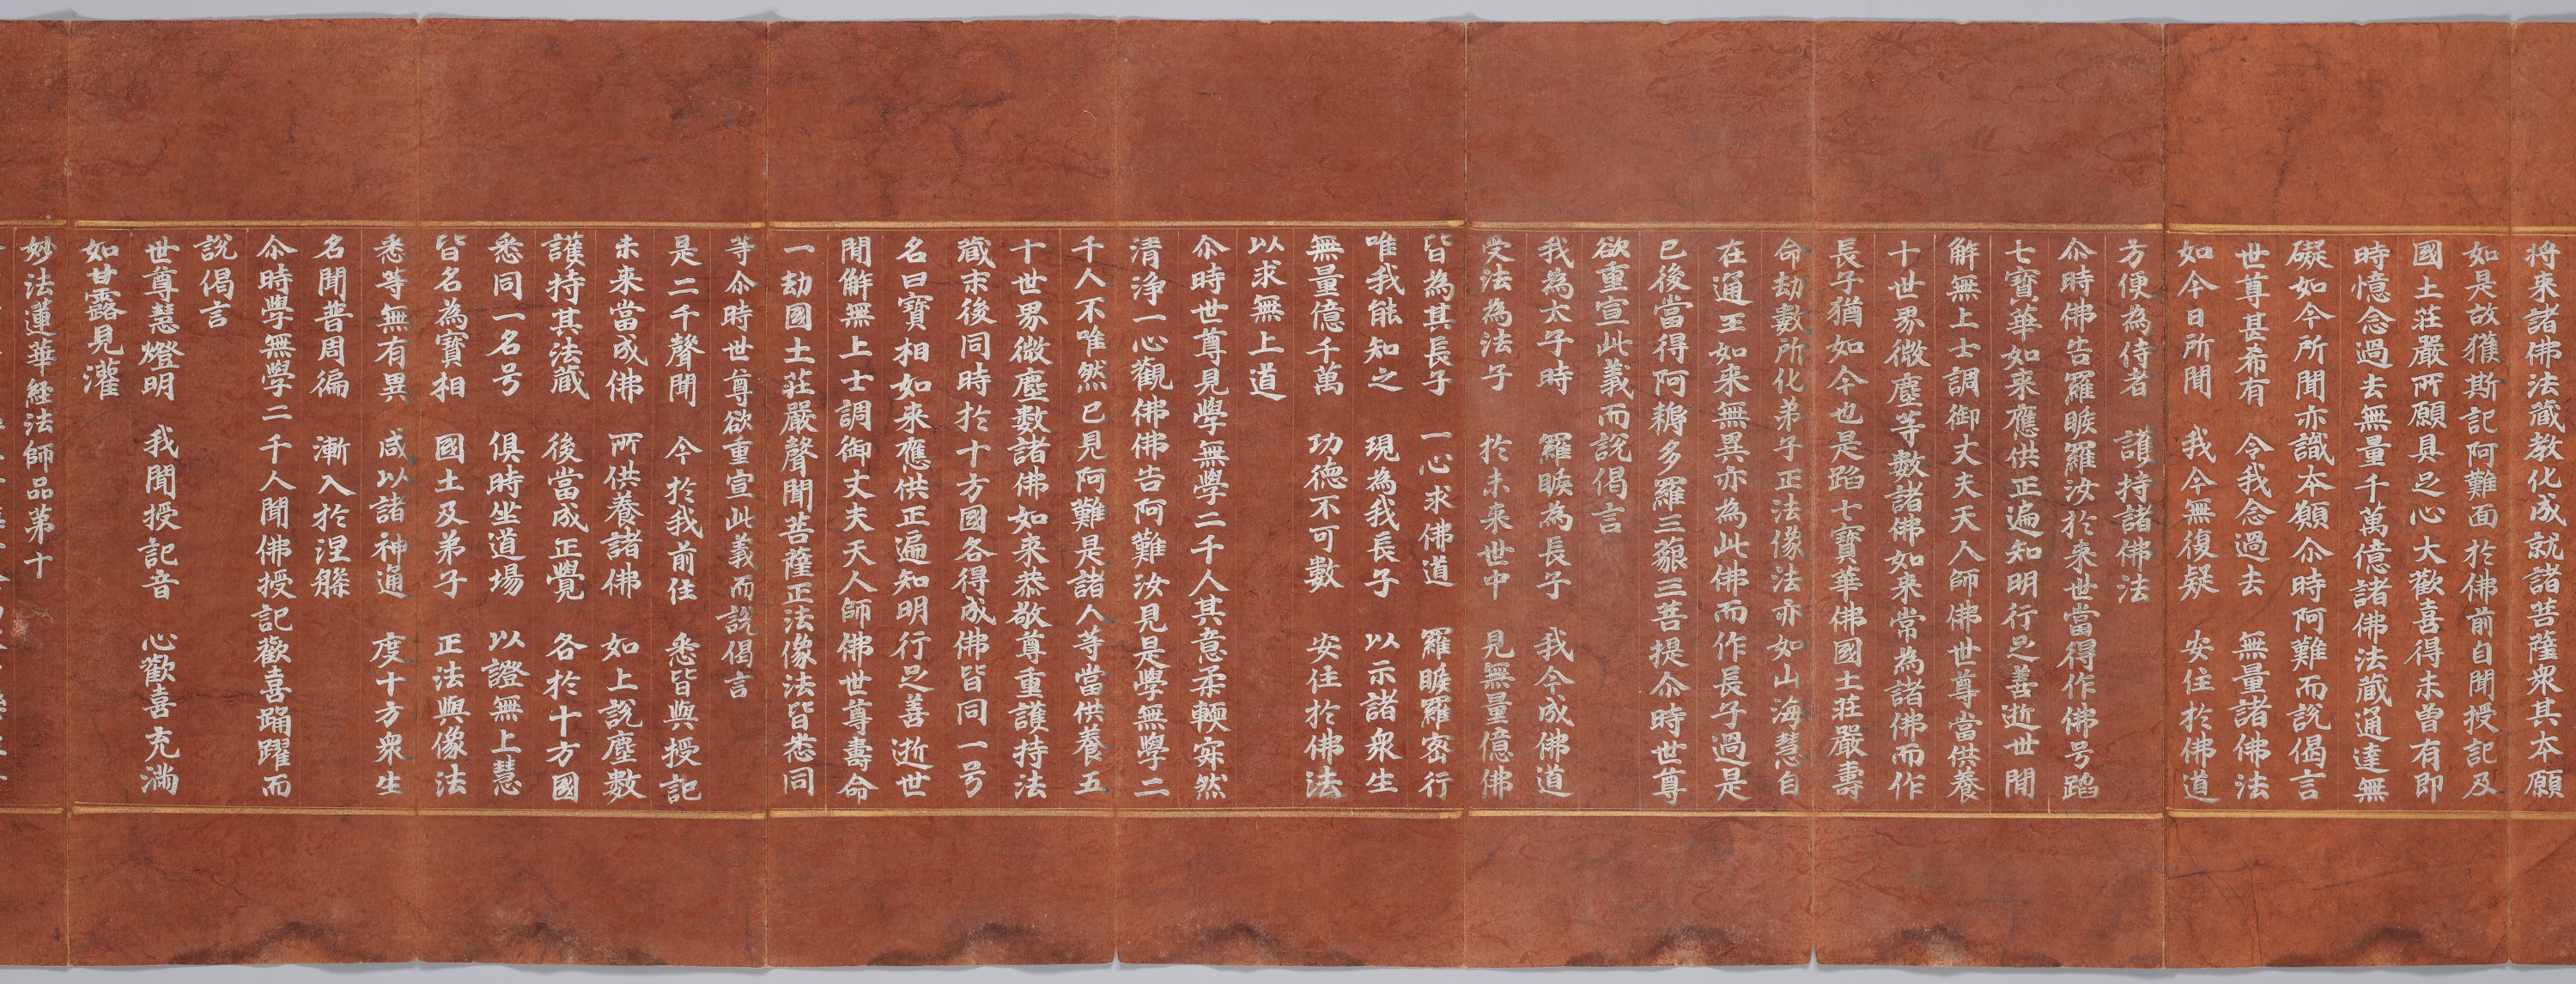 将来諸佛法蔵教化成就諸菩薩衆其本願
如是故獲斯記阿難面於佛前自聞授記及
國土莊嚴所願具足心大歡喜得未曾有即
時憶念過去無量千萬億諸佛法蔵通達無
礙如今所聞亦識本願尒時阿難而說偈言
世尊甚希有　令我念過去　無量諸佛法
如今日所聞　我今無復疑　安住於佛道
方便為侍者　護持諸佛法
尒時佛告羅睺羅汝於来世當得作佛号蹈
七寶華如来應供正遍知明行足善逝世間
解無上士調御丈夫天人師佛世尊當供養
十世界微塵等數諸佛如来常為諸佛而作
長子猶如今也是蹈七寶華佛國土莊嚴壽
命劫數所化弟子正法像法亦如山海慧自
在通王如来無異亦為此佛而作長子過是
已後當得阿耨多羅三藐三菩提尒時世尊
欲重宣此義而說偈言
我為太子時　羅睺為長子　我今成佛道
受法為法子　於未来世中　見無量億佛
皆為其長子　一心求佛道　羅睺羅密行
唯我能知之　現為我長子　以示諸衆生
無量億千萬　功德不可數　安住於佛法
以求無上道
尒時世尊見學無學二千人其意柔軟寂然
清淨一心觀佛佛告阿難汝見是學無學二
千人不唯然已見阿難是諸人等當供養五
十世界微塵數諸佛如来恭敬尊重護持法
蔵末後同時於十方國各得成佛皆同一号
名曰寶相如来應供正遍知明行足善逝世
間解無上士調御丈夫天人師佛世尊壽命
一劫國土莊嚴聲聞菩薩正法像法皆悉同
等尒時世尊欲重宣此義而說偈言
是二千聲聞　今於我前住　悉皆與授記
未来當成佛　所供養諸佛　如上說塵數
護持其法蔵　後當成正覺　各於十方國
悉同一名号　俱時坐道場　以證無上慧
皆名為寶相　國土及弟子　正法與像法
悉等無有異　咸以諸神通　度十方衆生
名聞普周徧　漸入於涅槃
尒時學無學二千人聞佛授記歡喜踊躍而
說偈言
世尊慧燈明　我聞授記音　心歡喜充滿
如甘露見灌
妙法蓮華経法師品第十